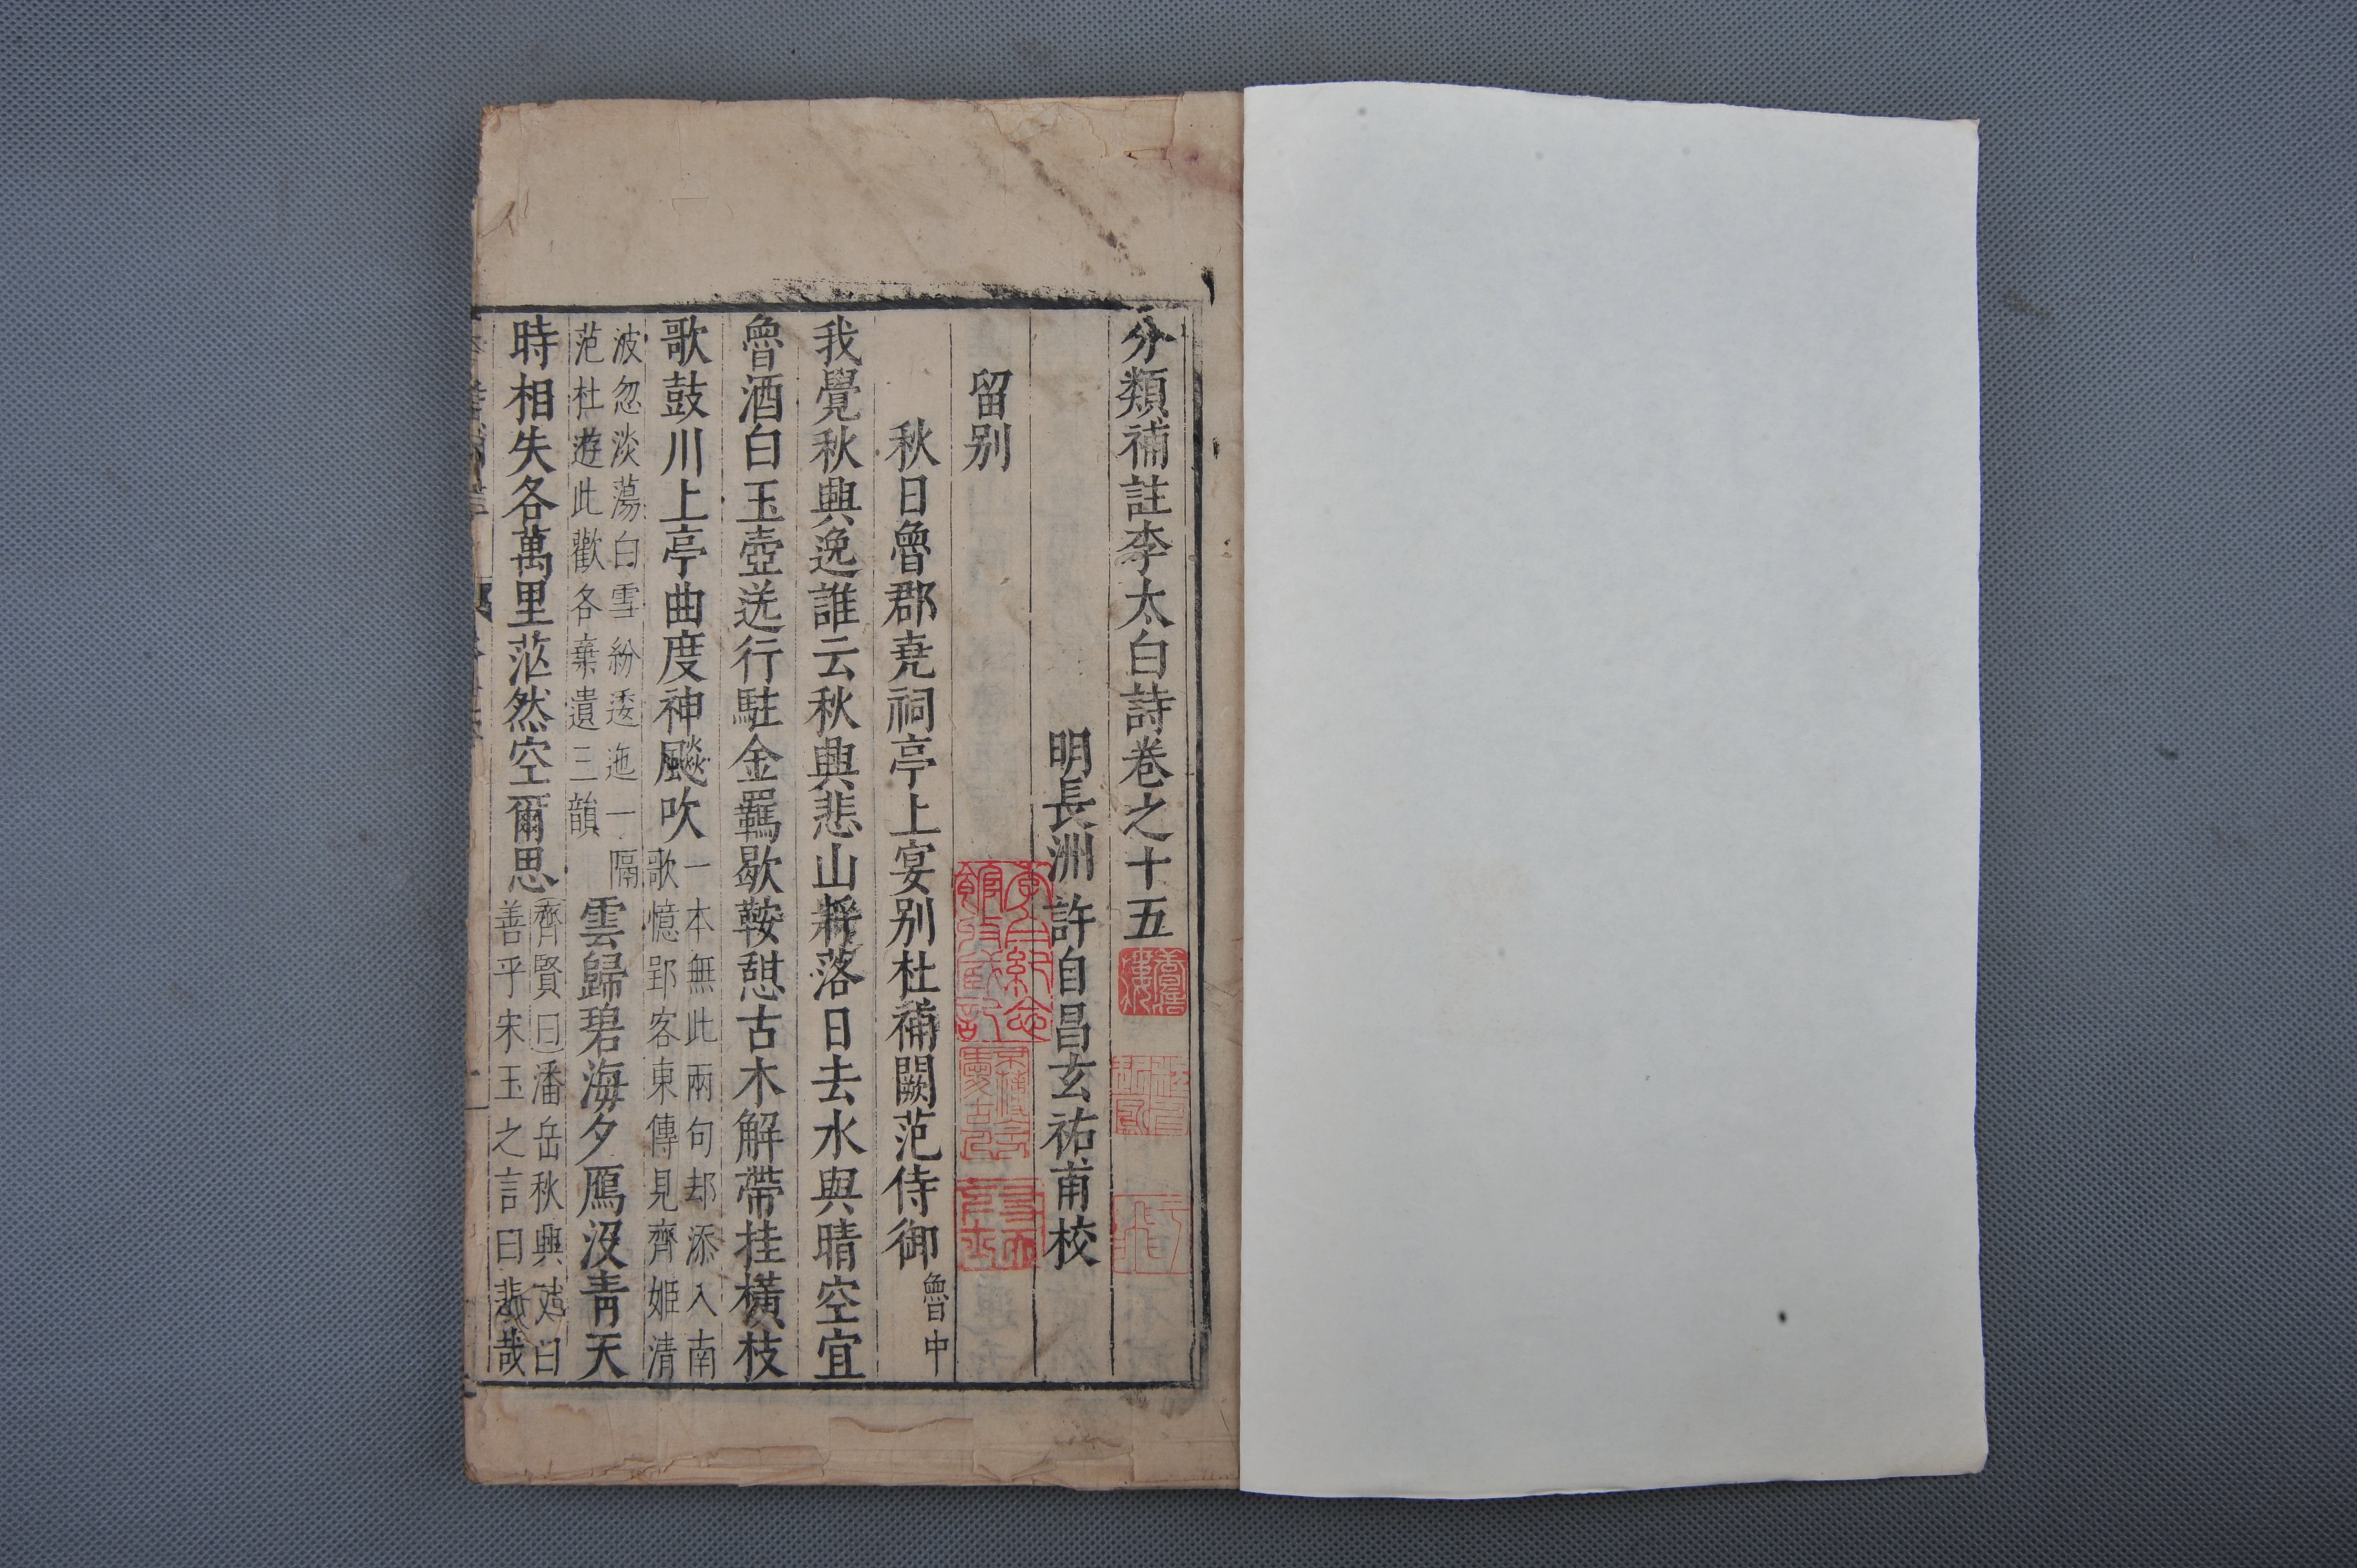 分類補註李太白詩卷之十五
明長洲許自昌玄祐甫校
留别
秋日魯郡堯祠亭上宴别杜補闕范侍御魯中
我覺秋興逸誰云秋興悲山將落日去水與晴空宜
魯酒白玉壺送行駐金羈歇鞍憩古木解帶挂橫枝
歌鼓川上亭曲度神飈吹一本無此兩句却添入南
歌憶郢客東傳見齊姬清
波忽淡蕩白雪紛逶迤一隔
范杜遊此歡各棄遺三韻
雲歸碧海夕鴈沒青天
時相失各萬里茫然空爾思齊賢曰潘岳秋興賦曰
善乎宋玉之言曰悲哉